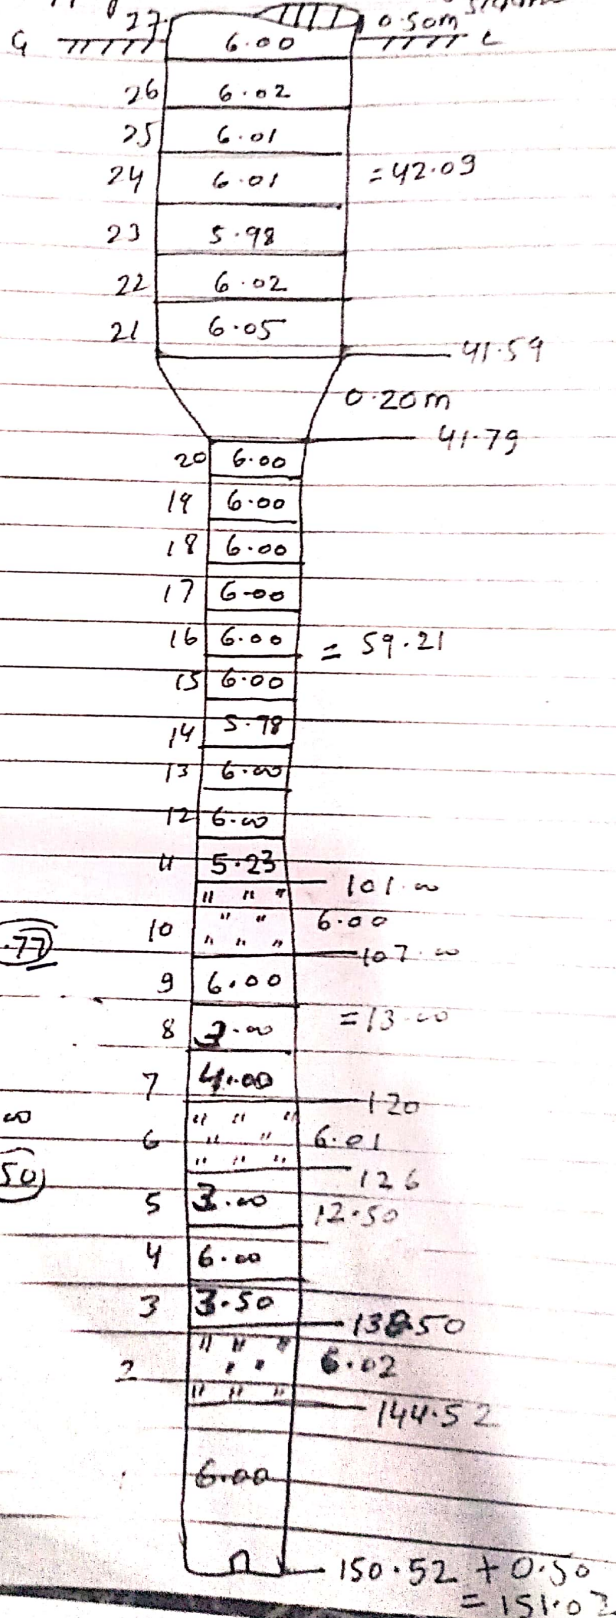 27 0.50m
G 6.00 L
26 6.02
25 6.01
24 6.01 = 42.09
23 5.98
22 6.02
21 6.05
41.59
0.20m
41.79
20 6.00
19 6.00
18 6.00
17 6.00
16 6.00 = 59.21
15 6.00
14 5.98
13 6.00
12 6.00
11 5.23
101.00
10 6.00
.77
107.00
9 6.00
8 3.00 = 13.00
7 4.00
120
00
6 6.01
50
126
5 3.00 12.50
4 6.00
3 3.50
138.50
2 6.02
144.52
6.00
150.52 + 0.50
= 151.02